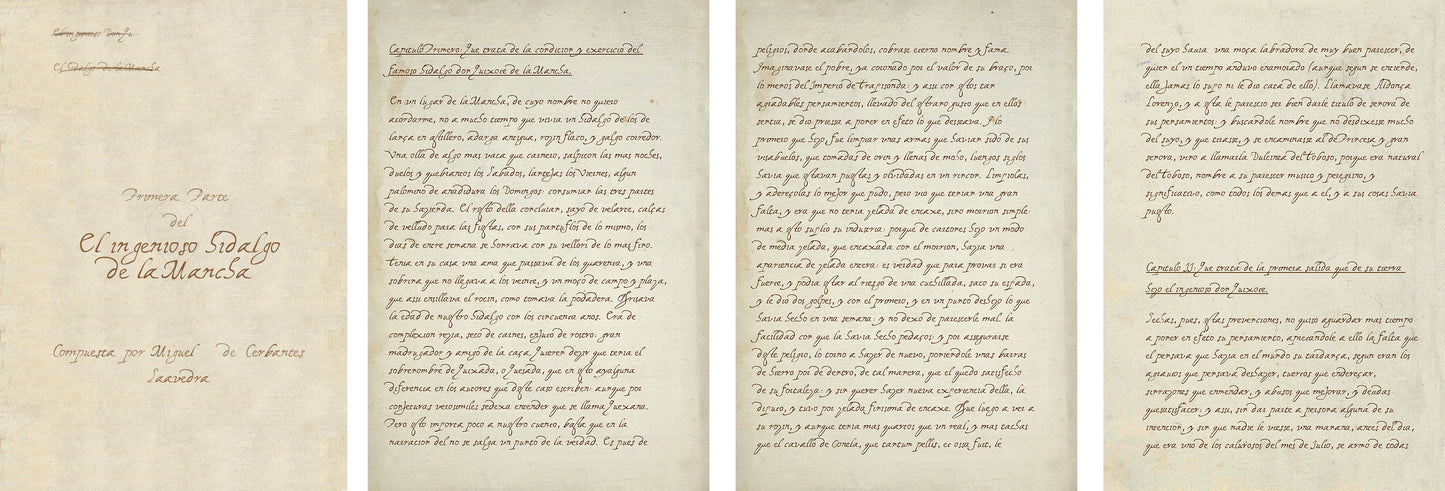 El ingenioso Don Qu
El Hidalgo de la Mancha
Primera Parte
del
El ingenioso Hidalgo
de la Mancha
Compuesta por Miguel de Cerbantes
Saavedra
Capitulo Primero: Que trata de la condicion y exercicio del
famoso hidalgo don Quixote de la Mancha.
En un lugar de la Mancha, de cuyo nombre no quiero
acordarme, no a mucho tiempo que vivia un hidalgo de los de
lança en astillero, adarga antigua, rozin flaco, y galgo corredor.
Una olla de algo mas vaca que carnero, salpicon las mas noches,
duelos y quebrantos los Sabados, lantejas los Viernes, algun
palomino de añadidura los Domingos: consumian las tres partes
de su hazienda. El resto della concluian, sayo de velarte, calças
de velludo para las fiestas, con sus pantuflos de lo mismo, los
dias de entre semana se honrava con su vellori de lo mas fino.
Tenia en su casa una ama que passava de los quarenta, y una
sobrina que no llegava a los veinte, y un moço de campo y plaça,
que assi ensillava el rocin, como tomava la podadera. Frisava
la edad de nuestro hidalgo con los cincuenta años. Era de
complexion rezia, seco de carnes, enjuto de rostro: gran
madrugador y amigo de la caça. Quieren dezir que tenia el
sobrenombre de Quixada, o Quesada, que en esto ay alguna
diferencia en los autores que deste caso escriben: aunque por
conjeturas verosimiles se dexa entender que se llama Quexana.
Pero esto importa poco a nuestro cuento, basta que en la
narracion del no se salga un punto de la verdad. Es pues de
peligros, donde acabandolos, cobrase eterno nombre y fama.
Imaginavase el pobre, ya coronado por el valor de su braço, por
lo menos del Imperio de Trapisonda: y assi con estos tan
agradables pensamientos, llevado del estraño gusto que en ellos
sentia, se dio priessa a poner en efeto lo que desseava. Y lo
primero que hizo fue limpiar unas armas que havian sido de sus
visabuelos, que tomadas de orin y llenas de moho, luengos siglos
havia que estavan puestas y olvidadas en un rincon. Limpiolas,
y adereçolas lo mejor que pudo, pero vio que tenian una gran
falta, y era que no tenia zelada de encaxe, sino morrion simple:
mas a esto suplio su industria: porque de cartones hizo un modo
de media zelada, que encaxada con el morrion, hazia una
apariencia de zelada entera: es verdad que para provar si era
fuerte, y podia estar al riesgo de una cuchillada, saco su espada,
y le dio dos golpes, y con el primero, y en un punto deshizo lo que
havia hecho en una semana: y no dexó de parecerle mal la
facilidad con que la havia hecho pedaços: y por assegurarse
deste peligro, lo torno a hazer de nuevo, poniendole unas barras
de hierro por de dentro, de tal manera, que el quedo satisfecho
de su fortaleza: y sin querer hazer nueva experiencia della, la
diputo, y tuvo por zelada finissima de encaxe. Fue luego a ver a
su rozin, y aunque tenia mas quartos que un real, y mas tachas
que el cavallo de Gonela, que tantum pellis, et ossa fuit, le
del suyo havia una moça labradora de muy buen parecer, de
quien el un tiempo anduvo enamorado (aunque segun se entiende,
ella jamas lo supo ni le dio cata de ello). Llamavase Aldonça
Lorenço, y a esta le parecio ser bien darle titulo de señora de
sus pensamientos: y buscandole nombre que no desdixesse mucho
del suyo, y que tirasse, y se encaminasse al de Princesa y gran
señora, vino a llamarla Dulcinea del Toboso, porque era natural
del Toboso, nombre a su parecer musico y peregrino, y
significativo, como todos los demas que a el, y a sus cosas havia
puesto.
Capitulo II: Que trata de la primera salida que de su tierra
hizo el ingenioso don Quixote.
Hechas, pues, estas prevenciones, no quiso aguardar mas tiempo
a poner en efeto su pensamiento, apretandole a ello la falta que
el pensava que hazia en el mundo su tardança, segun eran los
agravios que pensava deshazer, tuertos que endereçar,
sinrazones que enmendar, y abusos que mejorar, y deudas
que satisfacer: y assi, sin dar parte a persona alguna de su
intencion, y sin que nadie le viesse, una mañana, antes del dia,
que era uno de los calurosos del mes de Julio, se armó de todas